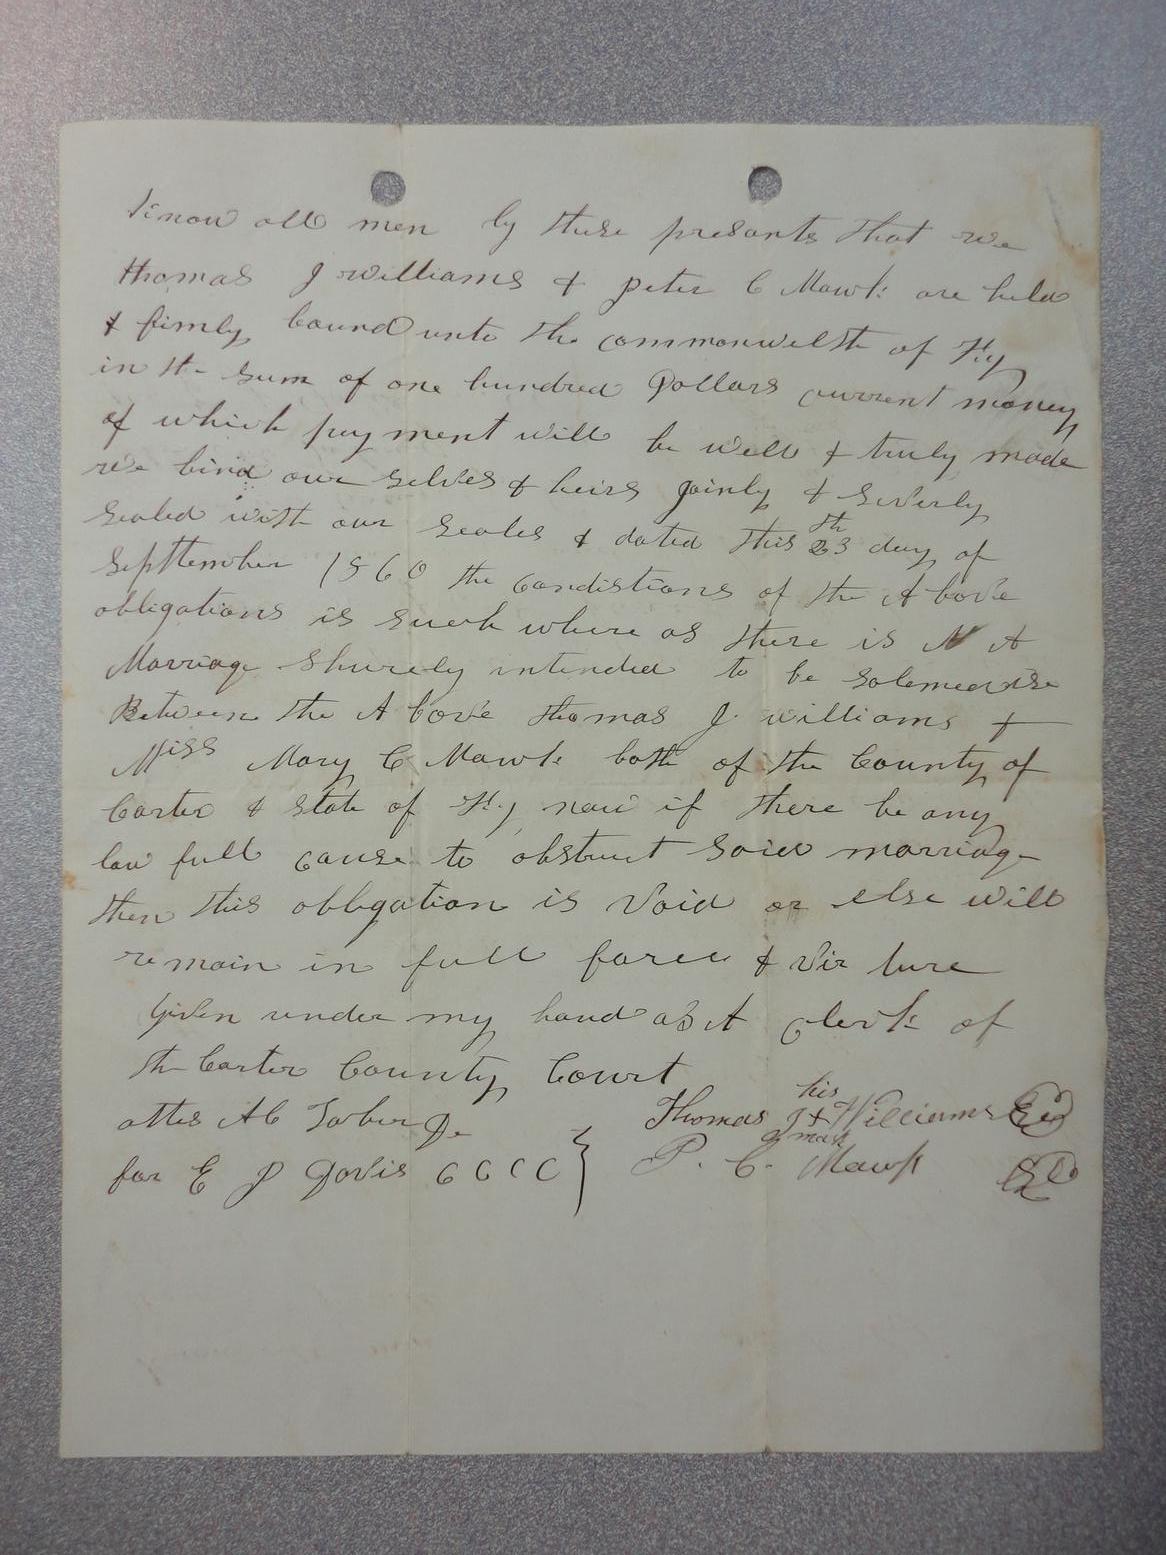 Know all men by these presants that we
thomas J williams & peter C Mawk are held
& firmly bound unto the commonwelth of Ky
in the sum of one hundred Dollars current money
of which pay ment will be well & truly made
we bind our selves & heirs Joinly & Severly
Sealed with our Seales & dated this 23th day of
Septtember 1860 the condistions of the A bove
obligations is such where as there is A
Marriage Shurely intended to be
Between the A bove thomas J. williams &
Miss Mary C Mawk both of the County of
Carter & State of Ky now if there be any
law full cause to obstruct Said marriage
then this obbligation is Void or else will
remain in full force & Vir ture
Given under my hand as A Clerk of
the Carter County Court
his
attes A C Taber D. Thomas J + Williams
mark
for E J Davis C C C C } P. C. Mawk